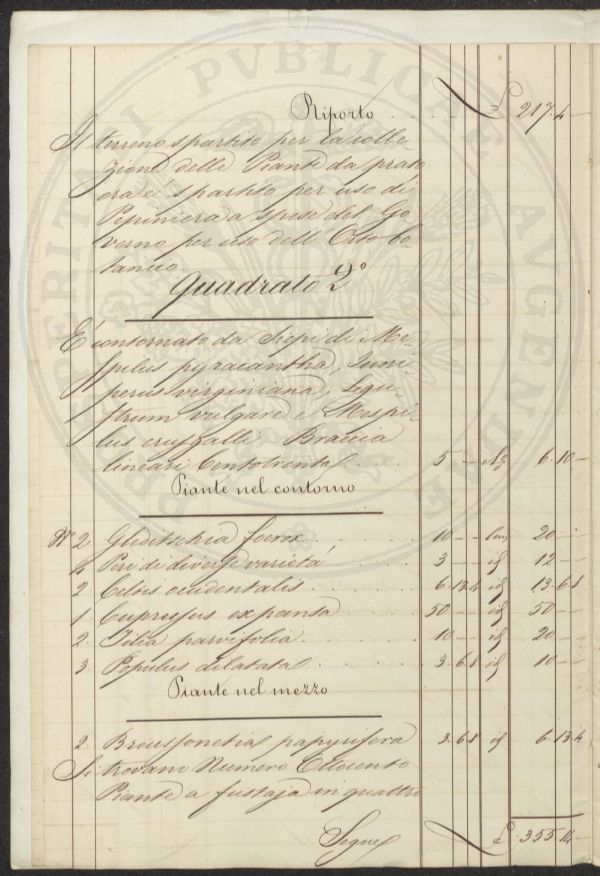 Riporto £ 217.4 —
Il terreno spartito per la colle-
zione delle Piante da prato
ora è spartito per uso di
Pepiniera a spese del Go-
verno per uso dell'Orto bo-
tanico.
Quadrato 2°
È contornato da Siepi di Me-
spilus pyracantha, Juni-
perus virginiana, Ligu-
strum vulgare e Mespi-
lus crusgalli. Braccia
lineari Centotrenta 5 — 6.10 —
Piante nel contorno
N° 2 Gleditschia foerox 10 — 20 —
4 Peri di diverse varietà 3 — id 12 —
2 Celtis occidentalis 6.13.4 id 13.6.8
1 Cupressus expansa 50 — id 50 —
2 Tilia parvifolia 10 — id 20 —
3 Populus dilatata 3.6.8 id 10 —
Piante nel mezzo
2 Broussonetia papyrifera 3.6.8 id 6.13.4
Si trovano Numero Ottocento
Piante a fustaja in quattro
Segue £ 355.14 —
PERITAE PVBLICAE AVGENDAE